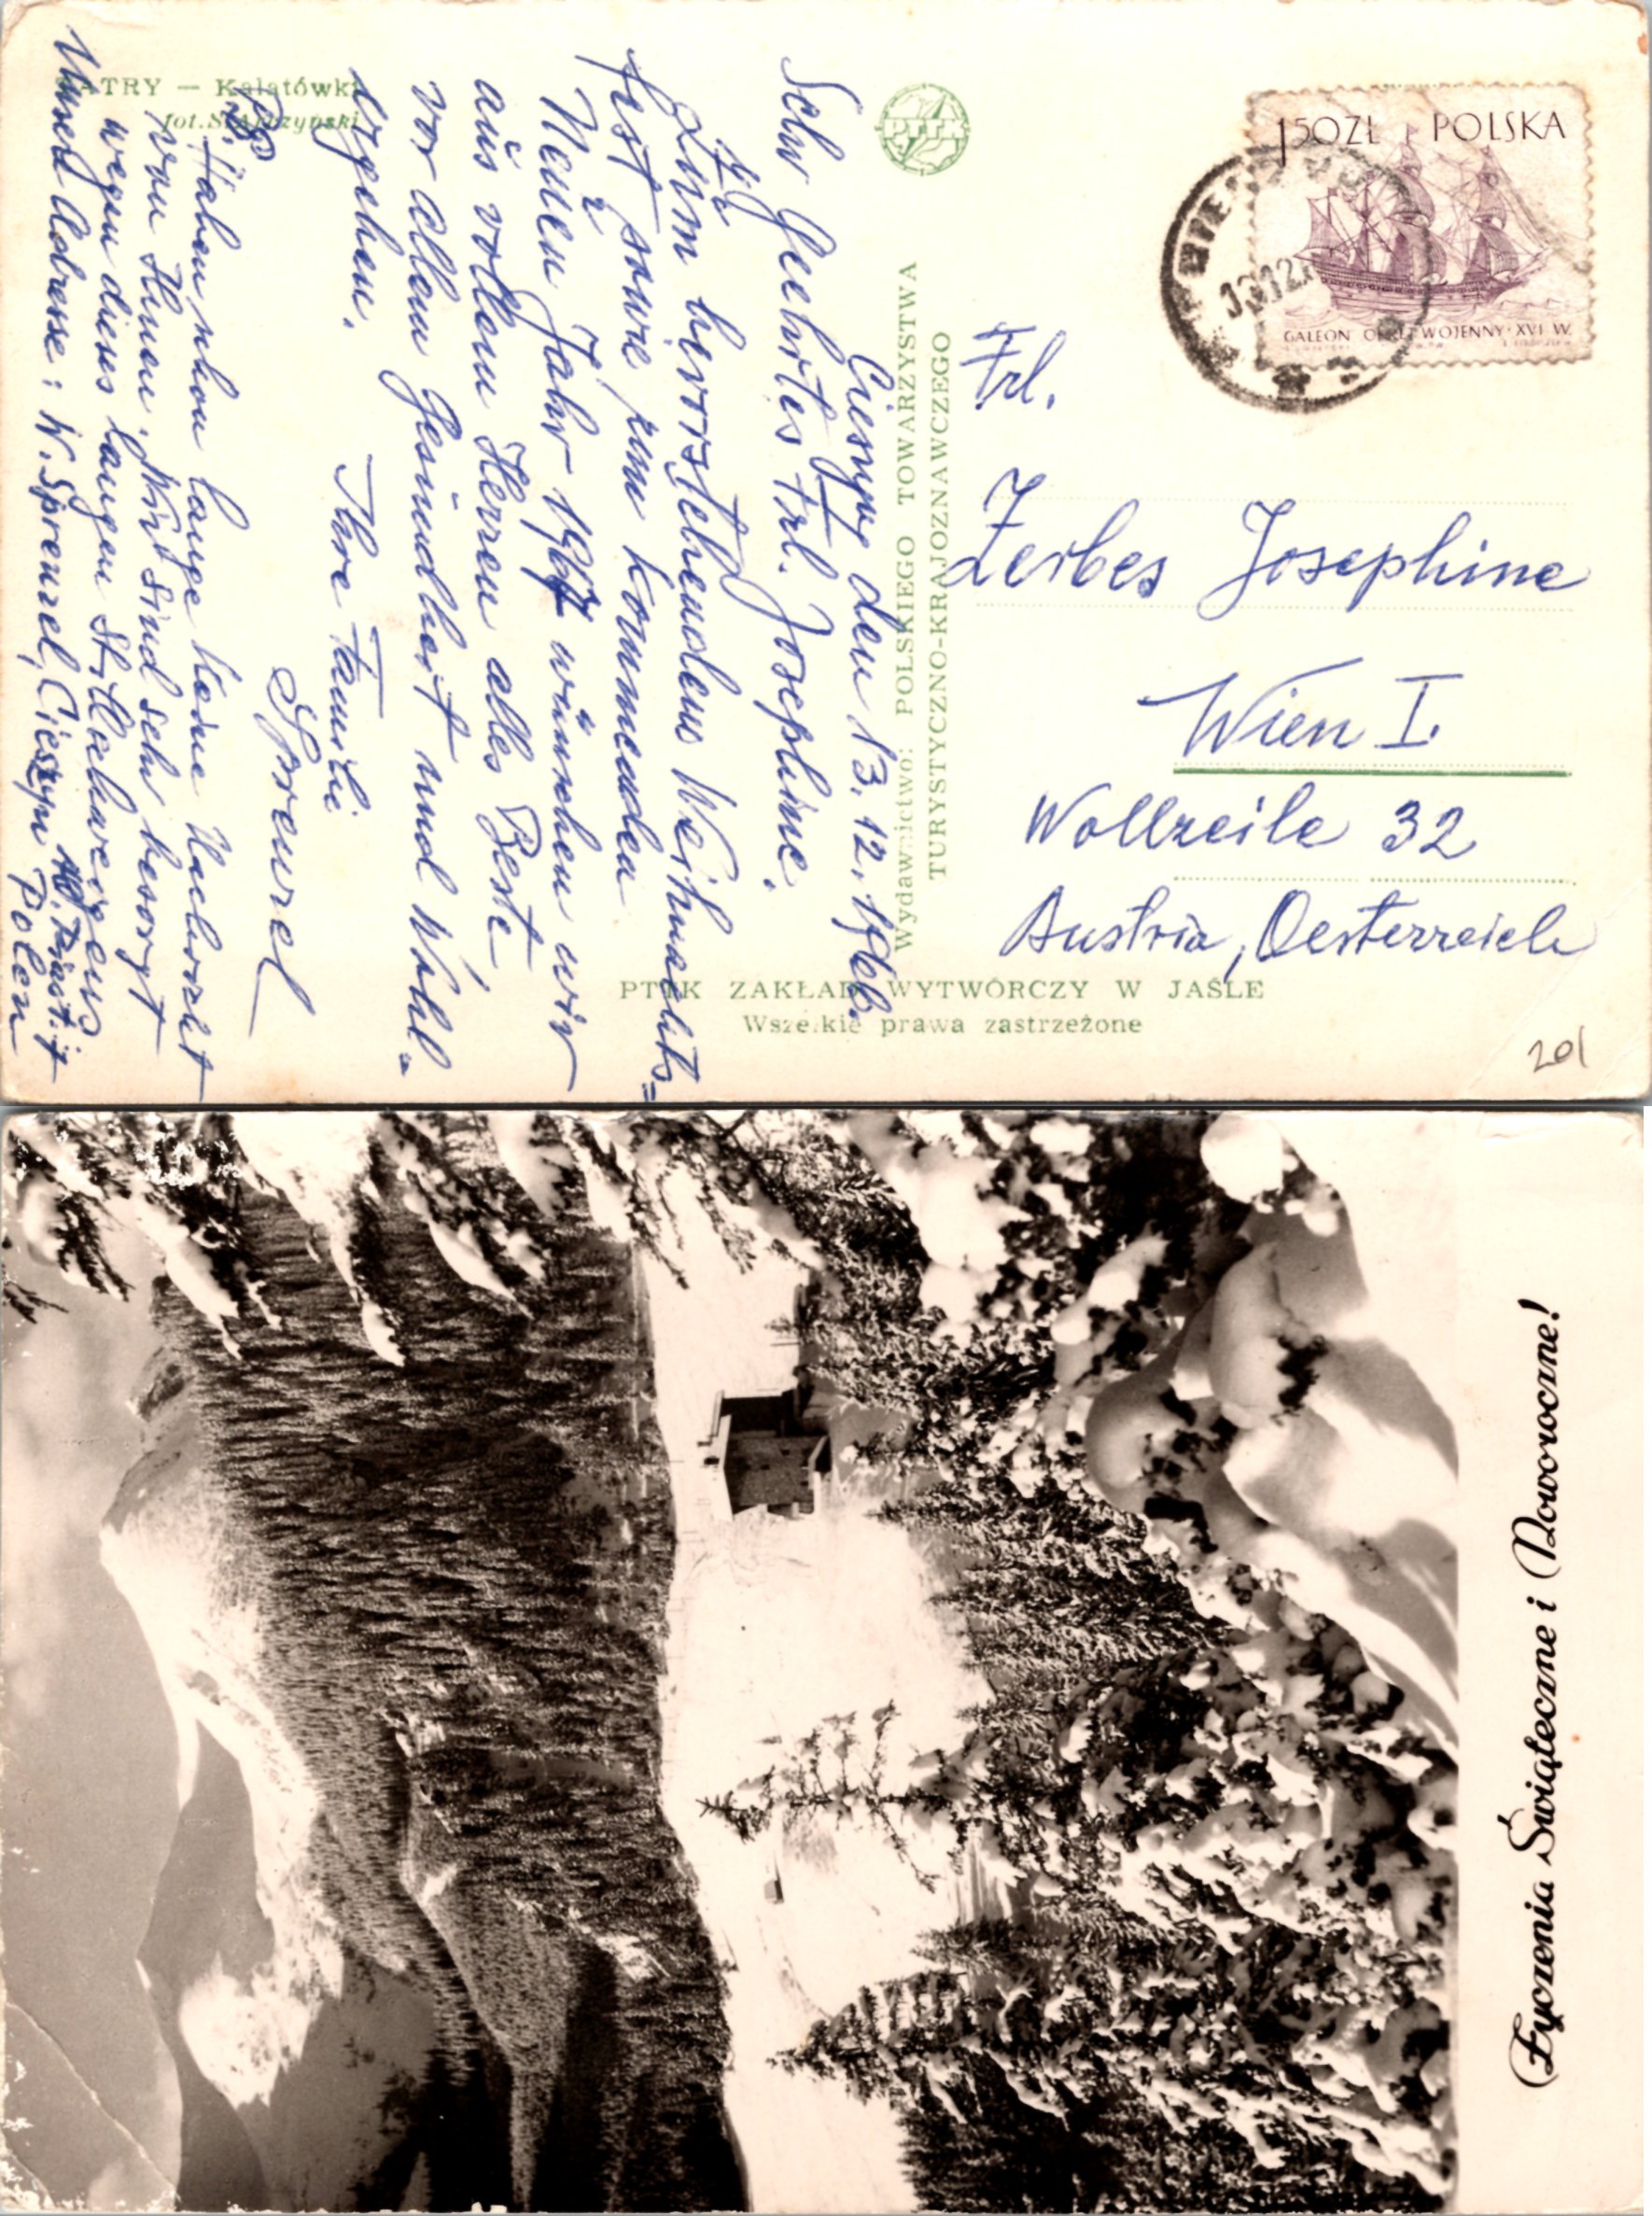 TATRY — Kalatówki
fot. S. Arczyński
PTTK
Wydawnictwo: POLSKIEGO TOWARZYSTWA
TURYSTYCZNO-KRAJOZNAWCZEGO
PTTK ZAKŁAD WYTWÓRCZY W JAŚLE
Wszelkie prawa zastrzeżone
1,50 ZŁ POLSKA
GALEON OKRĘT WOJENNY · XVI W.
Frl.
Zerbes Josephine
Wien I.
Wollzeile 32
Austria, Oesterreich
201
Cieszyn den 13.12.1966.
Sehr Geehrtes Frl. Josephine.
Zum bevorstehenden Weihnachts=
fest sowie zum kommenden
Neuen Jahr 1967 wünschen wir
aus vollem Herzen alles Beste,
vor allem Gesundheit und Wohl-
ergehen.
Ihre Familie
Sprenzel
Haben schon lange keine Nachricht
von Ihnen. Wir sind sehr besorgt
wegen dieses langen Stillschweigens
Unsere Adresse: W. Sprenzel, Cieszyn
Polen
Życzenia Świąteczne i Noworoczne!